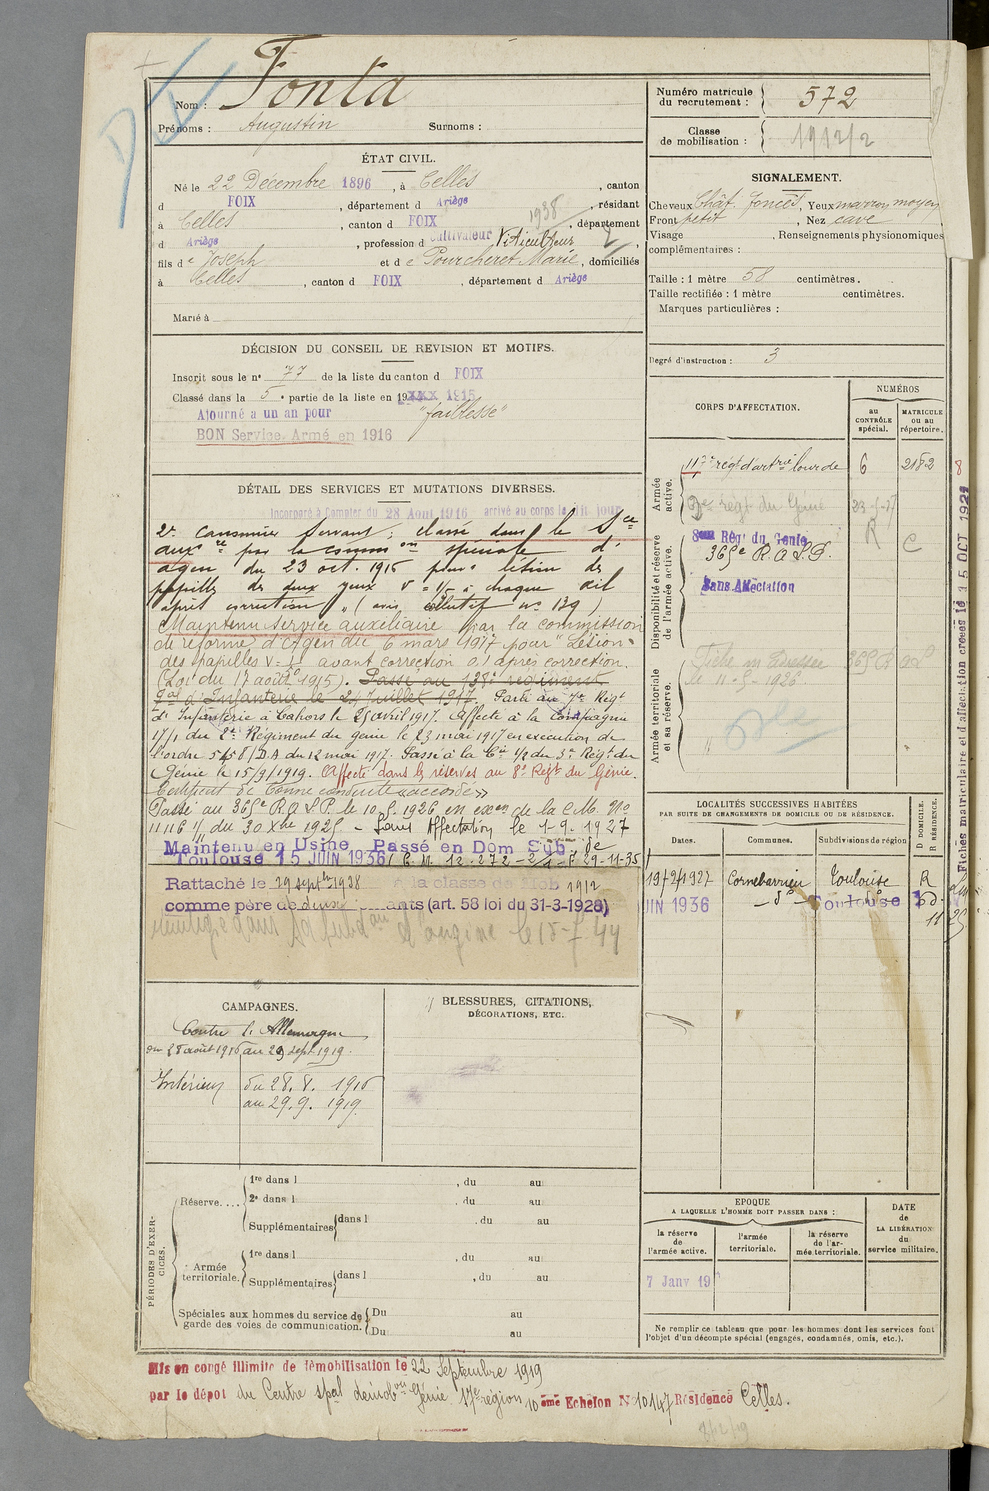 Nom : Fonta
Prénoms : Augustin Surnoms :
Numéro matricule du recrutement : 572
Classe de mobilisation : 1912/2
ÉTAT CIVIL.
Né le 22 Décembre 1896, à Celles, canton
d FOIX, département d Ariège, résidant
à Celles, canton d FOIX 1938, département
d Ariège, profession d cultivateur, Viticulteur
fils de Joseph et de Pourcheret Marie, domiciliés
à Celles, canton d FOIX, département d Ariège
Marié à
SIGNALEMENT.
Cheveux Chât. foncés, Yeux marron moyen
Front petit, Nez cave
Visage , Renseignements physionomiques
complémentaires :
Taille : 1 mètre 58 centimètres.
Taille rectifiée : 1 mètre centimètres.
Marques particulières :
Degré d'instruction : 3
DÉCISION DU CONSEIL DE REVISION ET MOTIFS.
Inscrit sous le n° 77 de la liste du canton d FOIX
Classé dans la 5e partie de la liste en 19 1915
Ajourné a un an pour "faiblesse"
BON Service Armé en 1916
CORPS D'AFFECTATION.
NUMÉROS
au CONTRÔLE spécial.
MATRICULE ou au répertoire.
Armée active.
117e régt d'artrie lourde 6 2182
2e régt du Génie 23-5-17
Disponibilité et réserve de l'armée active.
8eme Régt du Genie R C
365e R.O.S.P.
Sans Affectation
Armée territoriale et sa réserve.
Fiche m adressée 365 R
le 11-5-1926
DÉTAIL DES SERVICES ET MUTATIONS DIVERSES.
Incorporé à Compter du 28 Aout 1916 arrivé au corps le dit jour
2e Canonnier Servant ; classé dans le Sce
auxre par la common spéciale d'
agen du 23 oct. 1916 pour lésion des
papilles des deux yeux V = 1/ à chaque œil
après correction (avis n° 139)
Maintenu Service auxiliaire par la commission
de réforme d'Agen du 6 mars 1917 pour "Lésion
des papilles V = avant correction 0.1 après correction.
(Loi du 17 août 1915). Passé au 138e régiment
d'Infanterie le 2 Juillet 1917. Parti au 7e Régt
d'Infanterie à Cahors le 25 avril 1917. Affecté à la Compagnie
17/1 du 2e Régiment du génie le 23 mai 1917 en exécution de
l'ordre 5458/D.A du 12 mai 1917. Passé à la Cie 4/2 du 3e Régt du
Génie le 15/9/1919. Affecté dans les réserves au 8e Régt du Génie.
Certificat de bonne conduite «accordé»
Passé au 365e R.O.S.P. le 10.5.1926 en exon de la C.M. No
11116 1/11 du 30 Xbre 1925 - Sans Affectation le 1-9-1927
Maintenu en Usine Passé en Dom Sub. de
Toulouse 15 JUIN 1936 C.M. 12.272 29-11-35
Rattaché le 29 septbre 1938 à la classe de Mob 1912
comme père de deux enfants (art. 58 loi du 31-3-1928)
dans sa subdon d'origine le 15-7-44
LOCALITÉS SUCCESSIVES HABITÉES
PAR SUITE DE CHANGEMENTS DE DOMICILE OU DE RÉSIDENCE.
Dates. Communes. Subdivisions de région D DOMICILE. R RÉSIDENCE.
19/2/1927 Cornebarrieu Toulouse R
JUIN 1936 - do - Toulouse D
CAMPAGNES.
Contre l'Allemagne
du 28 août 1916 au 29 sept 1919.
Intérieur du 28. 8. 1916
au 29. 9. 1919
BLESSURES, CITATIONS,
DÉCORATIONS, ETC.
PÉRIODES D'EXERCICES.
Réserve....
1re dans l , du au
2e dans l , du au
Supplémentaires dans l , du au
Armée territoriale.
1re dans l , du au
Supplémentaires dans l , du au
Spéciales aux hommes du service de garde des voies de communication.
Du au
Du au
EPOQUE
A LAQUELLE L'HOMME DOIT PASSER DANS :
la réserve de l'armée active.
l'armée territoriale.
la réserve de l'armée territoriale.
DATE de LA LIBÉRATION du service militaire.
7 Janv 19
Ne remplir ce tableau que pour les hommes dont les services font
l'objet d'un décompte spécial (engagés, condamnés, omis, etc.).
Mis en congé illimité de démobilisation le 22 Septembre 1919
par le dépot du Centre spal démobon Génie 17e région 10eme Echelon N° 10147 Résidence Celles.
Fiches matriculaire et d'affectation créées le 15 OCT 1921